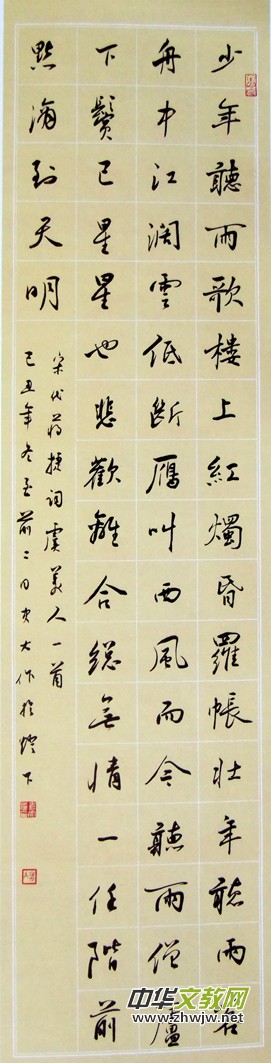 少年聽雨歌楼上紅燭昏羅帳壯年聽雨客
舟中江濶雲低断鴈叫西風而今聽雨僧廬
下鬢已星星也悲歡離合總無情一任階前
點滴到天明
宋代蒋捷詞虞美人一首
己丑年冬至前二日大作於燈下
中华文教网
www.zhwjw.net